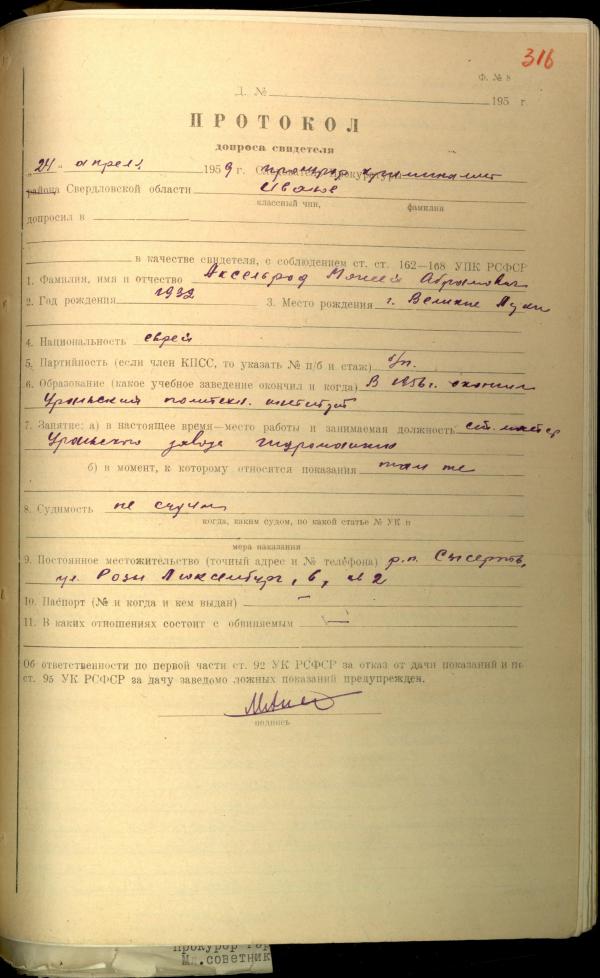 316
Ф. № 8
Д. № 195 г.
ПРОТОКОЛ
допроса свидетеля
„24“ апреля 1959 г. прокурор криминалист
района Свердловской области Иванов
классный чин, фамилия
допросил в
в качестве свидетеля, с соблюдением ст. ст. 162—168 УПК РСФСР
1. Фамилия, имя и отчество Аксельрод Моисей Абрамович
2. Год рождения 1932 3. Место рождения г. Великие Луки
4. Национальность еврей
5. Партийность (если член КПСС, то указать № п/б и стаж) б/п.
6. Образование (какое учебное заведение окончил и когда) В 1956г. окончил
Уральский политехн. институт
7. Занятие: а) в настоящее время—место работы и занимаемая должность ст. мастер
Уральского завода гидромашин
б) в момент, к которому относятся показания там же
8. Судимость не судим
когда, каким судом, по какой статье № УК и
мера наказания
9. Постоянное местожительство (точный адрес и № телефона) р.п. Сысерть,
ул. Розы Люксембург, 6, кв 2
10. Паспорт (№ и когда и кем выдан) —
11. В каких отношениях состоит с обвиняемым —
Об ответственности по первой части ст. 92 УК РСФСР за отказ от дачи показаний и по
ст. 95 УК РСФСР за дачу заведомо ложных показаний предупрежден.
подпись
Прокурор гор
Мл.советник